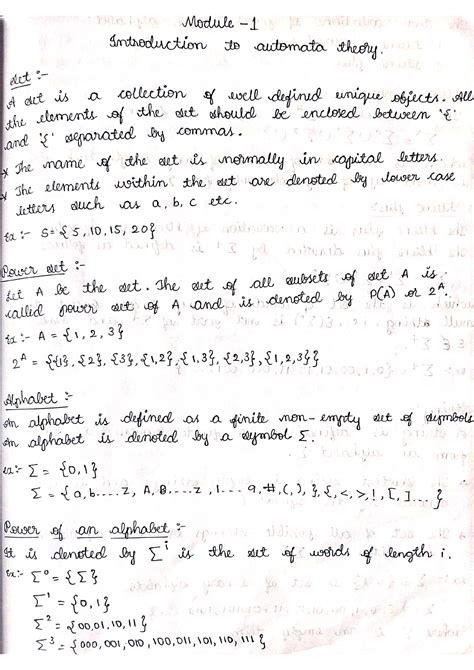 Module - 1
Introduction to automata theory.
Set :-
A set is a collection of well defined unique objects. All
the elements of the set should be enclosed between '{'
and '{' separated by commas.
* The name of the set is normally in capital letters.
* The elements within the set are denoted by lower case
letters such as a, b, c etc.
Ex :- S = {5, 10, 15, 20}
Power set :-
Let A be the set. The set of all subsets of set A is
called power set of A and is denoted by P(A) or 2^A.
Ex :- A = {1, 2, 3}
2^A = {{1}, {2}, {3}, {1,2}, {1,3}, {2,3}, {1,2,3}}
Alphabet :-
An alphabet is defined as a finite non-empty set of symbols
An alphabet is denoted by a symbol Σ.
ex :- Σ = {0, 1}
Σ = {a, b....z, A, B....z, 1...9, #, (, ), }, {, <, >, !, [, ]....}
Power of an alphabet :-
It is denoted by Σ^i is the set of words of length i.
Ex :- Σ^0 = {Σ}
Σ^1 = {0, 1}
Σ^2 = {00, 01, 10, 11}
Σ^3 = {000, 001, 010, 100, 011, 101, 110, 111}